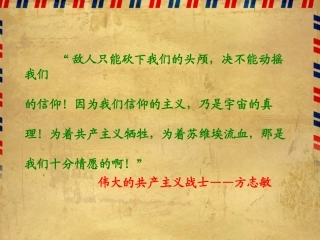 “敌人只能砍下我们的头颅，决不能动摇
我们
的信仰！因为我们信仰的主义，乃是宇宙的真
理！为着共产主义牺牲，为着苏维埃流血，那是
我们十分情愿的啊！”
伟大的共产主义战士——方志敏